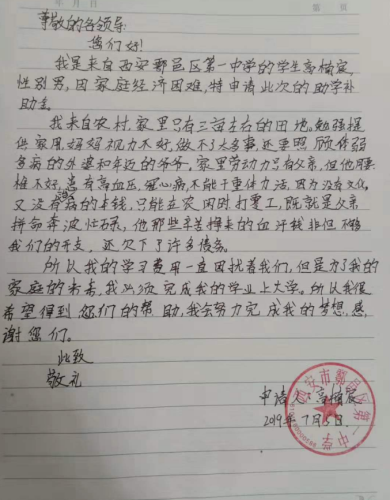 尊敬的各领导:
您们好!
我是来自西安鄠邑区第一中学的学生高楠宸,
性别男,因家庭经济困难,特申请此次的助学补
助金。
我来自农村,家里只有三亩左右的田地,勉强提
供家用,妈妈视力不好,做不了太多事,还要照顾体弱
多病的外婆和年迈的爷爷。家里劳动力只有父亲,但他腰
椎不好,患有高血压,冠心病不能干重体力活,因为没有文化,
又没有
的来钱,只能在农闲时打零工,既就是父亲
拼命奔波忙碌,他那些辛苦挣来的血汗钱非但不够
我们的开支,还欠下了许多债务。
所以我的学习费用一直困扰着我们,但是为了我的
家庭的未来,我必须完成我的学业上大学。所以我很
希望得到您们的帮助,我会努力完成我的梦想,感
谢您们。
此致
敬礼
申请人:高楠宸
2019年7月5日.
西安市鄠邑区第一中学